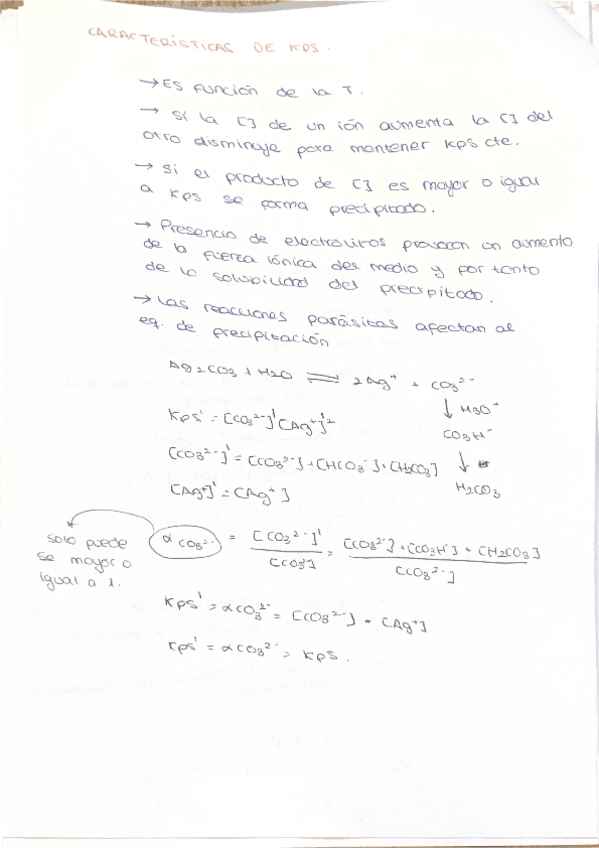 CARACTERÍSTICAS DE KPS.
→ Es función de la T.
→ Si la [] de un ión aumenta la [] del
otro disminuye para mantener Kps cte.
→ Si el producto de [] es mayor o igual
a Kps se forma precipitado.
→ Presencia de electrolitos provocan un aumento
de la fuerza iónica del medio y por tanto
de la solubilidad del precipitado.
→ Las reacciones parásitas afectan al
eq. de precipitación
Ag2CO3 + H2O ⇌ 2Ag⁺ + CO3²⁻
↓ H3O⁺
Kps' = [CO3²⁻]' [Ag⁺]'²
CO3H⁻
[CO3²⁻]' = [CO3²⁻] + [HCO3⁻] + [H2CO3]
↓
H2CO3
[Ag⁺]' = [Ag⁺]
solo puede
se mayor o
igual a 1.
α CO3²⁻ = [CO3²⁻]' / [CO3²⁻] = [CO3²⁻] + [CO3H⁻] + [H2CO3] / [CO3²⁻]
Kps' = αCO3²⁻ = [CO3²⁻] - [Ag⁺]
Kps' = αCO3²⁻ = Kps.